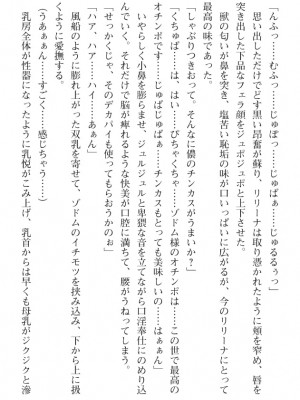 「んふっ……むふっ……じゅぽっ……じゅるるぅっ」
思い出しただけでどす黒い昂奮が蘇り、リリーナは取り憑かれたように頬を窄め、唇を
突き出した下品なフェラ顔をジュポジュポと上下させた。
獣の匂いが鼻を突き、塩苦い恥垢の味が口いっぱいに広がるが、今のリリーナにとって
最高の味であった。
「しゃぶりつきおって。そんなに儂のチンカスがうまいのか」
「くちゅぱ……は、はい……ぴちゃくちゃ……ゾドム様のオチンポ……この世で最高の
オチンポです……じゅぱじゅぱ……チンカスもとっても美味しいの……はぁぁん」
いやらしく小鼻を膨らませ、ジュルジュルと卑猥な音を立てながら口淫奉仕にのめり込
んでいく。それだけで脳が痺れるような快美が口腔に満ちて、腰がうねってしまう。
「せっかくじゃ、そのデカパイも使ってもらおうかのぉ」
「ハァ、ハァ……ハイ……あぁん」
風船のように膨れ上がった双乳を寄せて、ゾドムのイチモツを挟み込み、下から上に扱
くように愛撫する。
(うあぁぁん……すごく……感じちゃうう)
乳房全体が性器になったように乳悦がこみ上げ、乳首からは早くも母乳がジクジクと滲